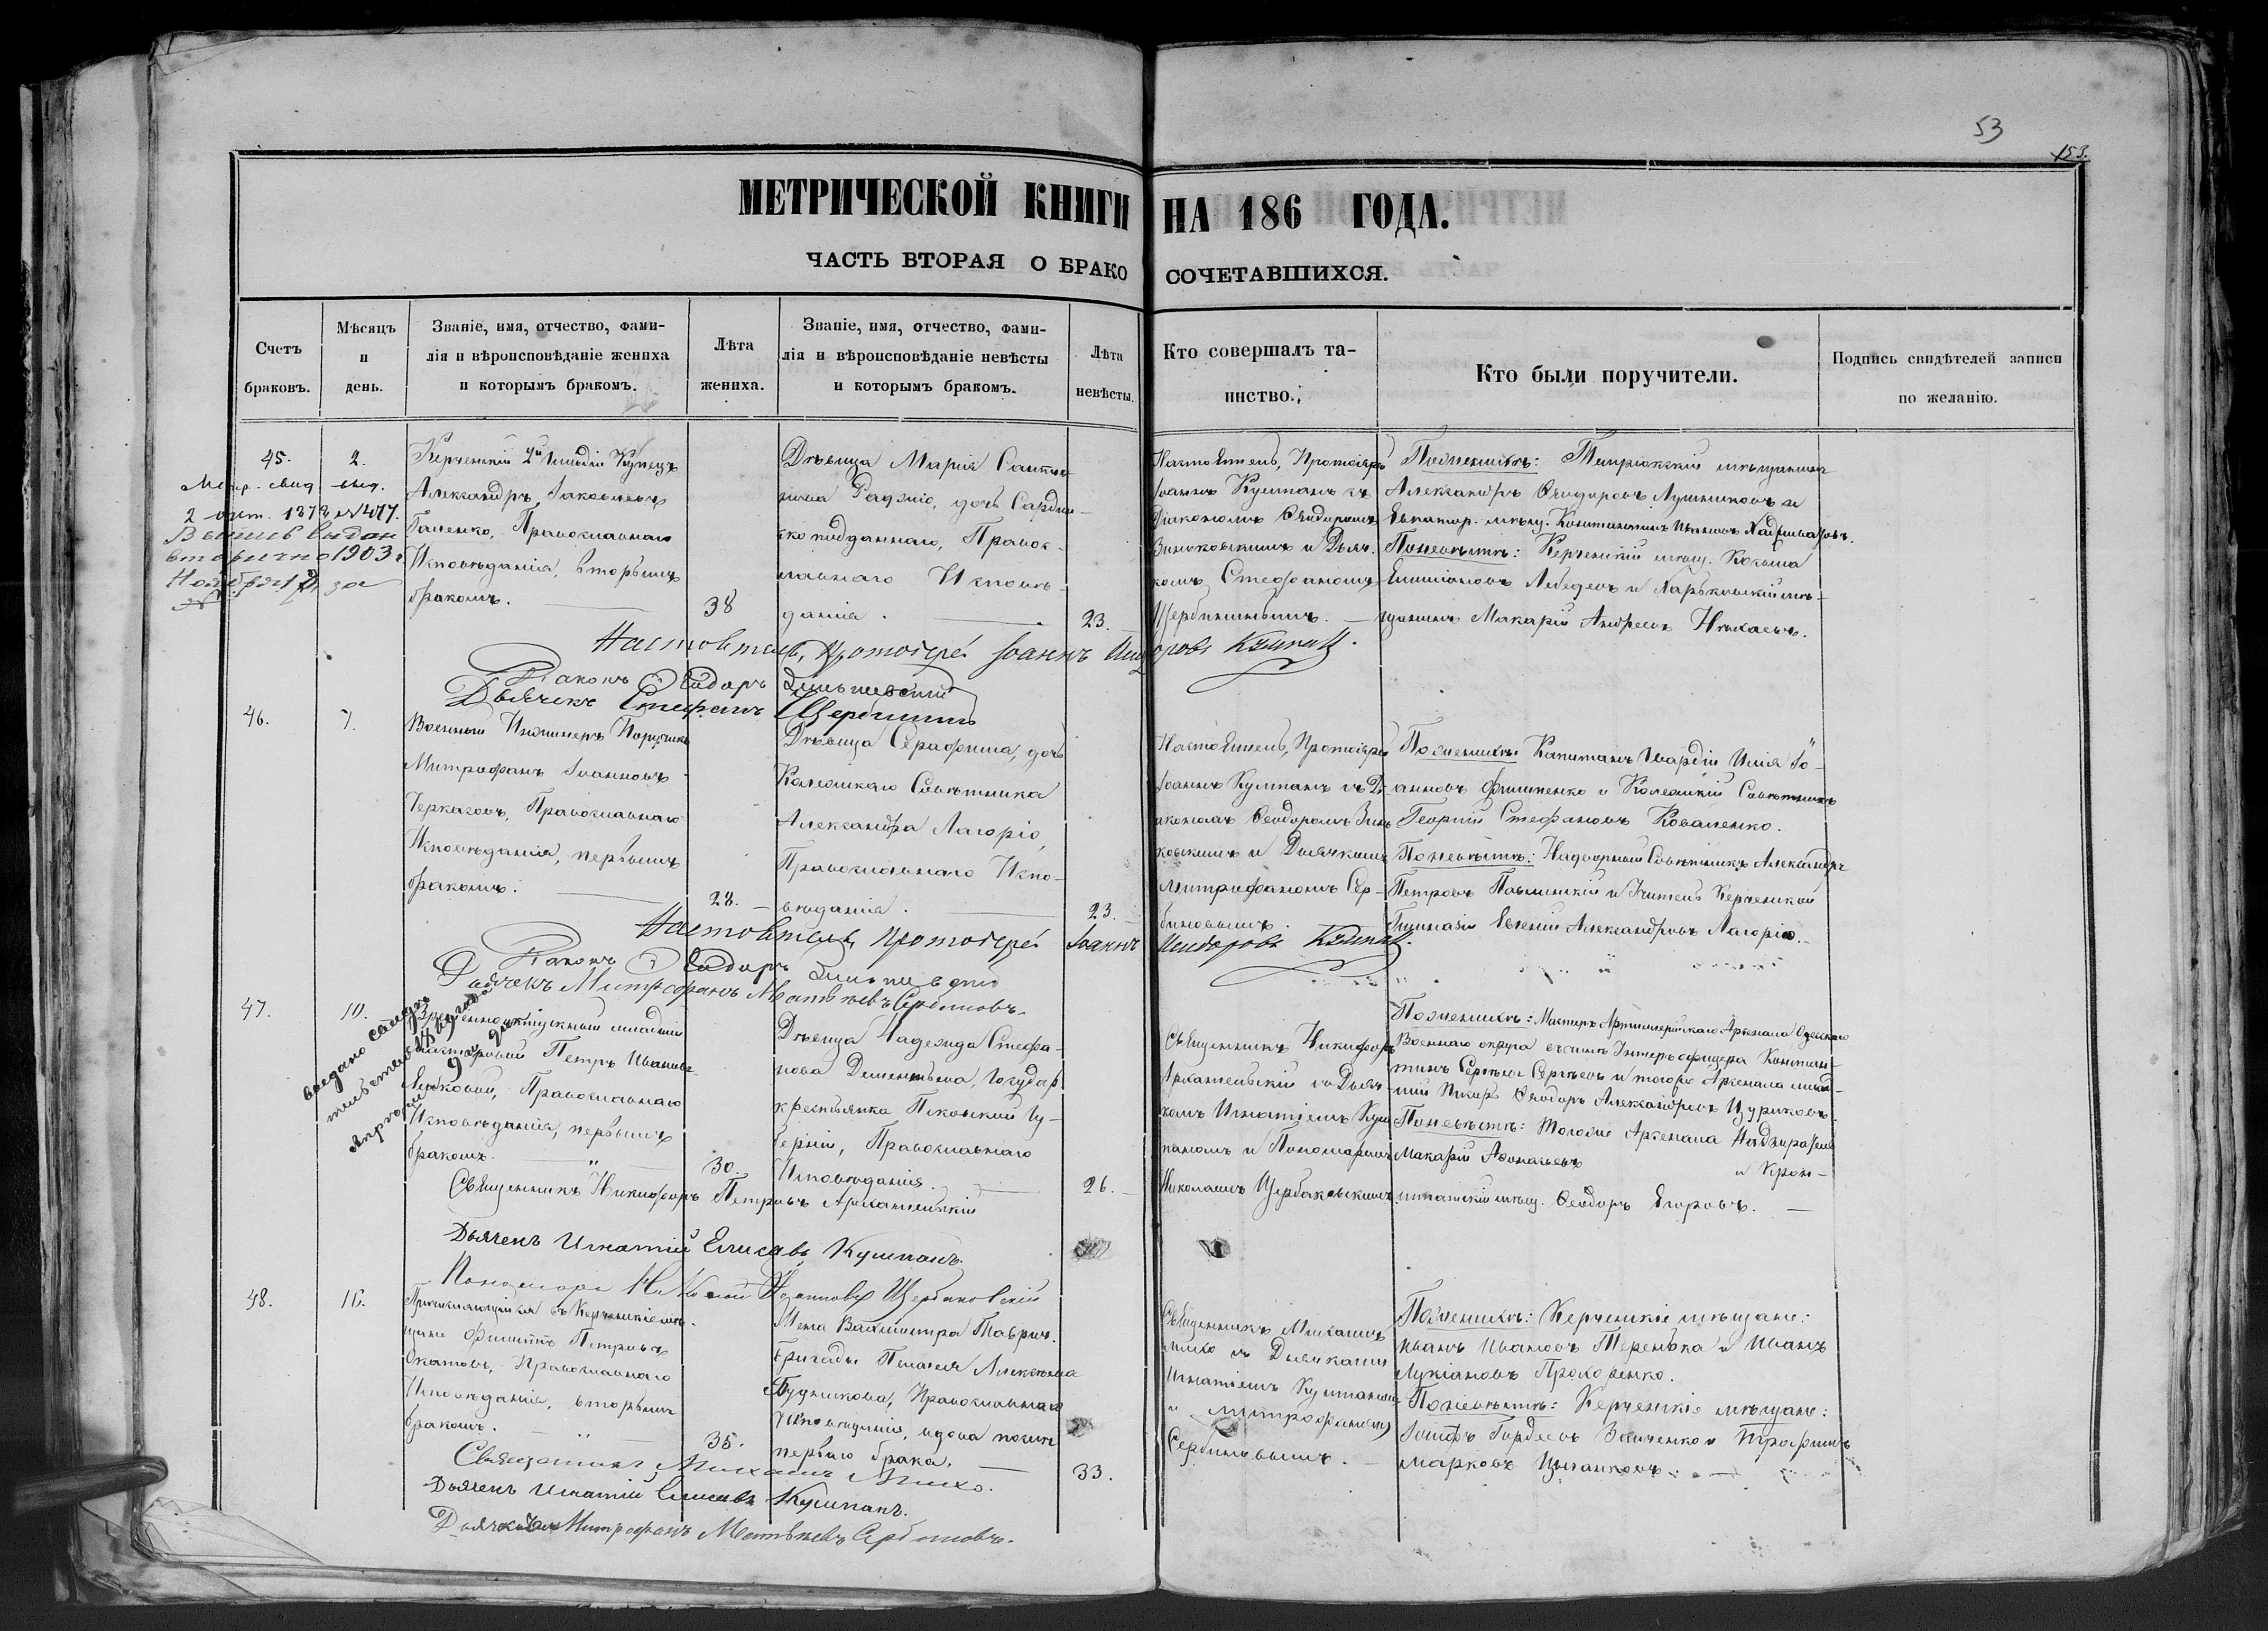 53
153.
МЕТРИЧЕСКОЙ КНИГИ НА 186 ГОДА.
ЧАСТЬ ВТОРАЯ О БРАКОСОЧЕТАВШИХСЯ.
Счетъ браковъ.
Мѣсяцъ и день.
Званіе, имя, отчество, фами-
лія и вѣроисповѣданіе жениха
и которымъ бракомъ.
Лѣта жениха.
Званіе, имя, отчество, фами-
лія и вѣроисповѣданіе невѣсты
и которымъ бракомъ.
Лѣта невѣсты.
Кто совершалъ та-
инство.
Кто были поручители.
Подпись свидѣтелей записи
по желанію.
45.
2.
Метр. свид. выд.
2 окт. 1878 № 477.
выдан
вторично 1903 г.
Ноября
Керченскій 2й гильдіи Купецъ
Александръ Іаковлевъ
Православнаго
Исповѣданія, вторымъ
бракомъ.
38
Дѣвица Марія
дочь Сардин-
скоподданнаго, Правос-
лавнаго Исповѣ-
данія.
23.
Настоятель, Протоіерей
Іоаннъ Кушпанъ съ
Діакономъ Ѳеодоромъ
Зиньковскимъ и Дьяч-
комъ Стефаномъ
Щербининымъ.
По женихѣ: Темрюкскій мѣщанинъ
Александръ Ѳеодоровъ Лушниковъ и
Евпатор. мѣщ. Константинъ Ивановъ
По невѣстѣ: Керченскій мѣщ. Козьма
Лебедевъ и Харьковскій мѣ-
щанинъ Макарій Андреевъ
Настоятель, Протоіерей Іоаннъ Исидоровъ Кушпанъ.
Діаконъ Ѳеодоръ Зиньковскій
Дьячекъ Стефанъ Щербининъ
46.
7.
Военный Инженеръ Поручикъ
Митрофанъ Іоанновъ
Черкасовъ, Православнаго
Исповѣданія, первымъ
бракомъ.
28.
Дѣвица Серафима, дочь
Коллежскаго Совѣтника
Александра Лагоріо,
Православнаго Испо-
вѣданія.
23.
Настоятель, Протоіерей
Іоаннъ Кушпанъ съ Ді-
акономъ Ѳеодоромъ Зинь-
ковскимъ и Дьячкомъ
Митрофаномъ Сер-
биновымъ.
По женихѣ: Капитанъ Гвардіи Илія Іо-
анновъ Филипенко и Коллежскій Совѣтникъ
Георгій Стефановъ Коваленко.
По невѣстѣ: Надворный Совѣтникъ Александръ
Петровъ Павлинскій и Учитель Керченской
Гимназіи Евгеній Александровъ Лагоріо.
Настоятель, Протоіерей Іоаннъ Исидоровъ Кушпанъ.
Діаконъ Ѳеодоръ Зиньковскій
Дьячекъ Митрофанъ Матвѣевъ Сербиновъ.
47.
10.
младшій
мастеровой Петръ Ивановъ
Православнаго
Исповѣданія, первымъ
бракомъ.
30.
Дѣвица Надежда Стефа-
нова Дементьева, Государ.
крестьянка Псковской Гу-
берніи, Православнаго
Исповѣданія.
26.
Священникъ Никифоръ
Архангельскій съ Дьяч-
комъ Игнатіемъ Куш-
паномъ и Пономаремъ
Николаемъ Щербаковскимъ.
По женихѣ: Мастеръ Артиллерійскаго Арсенала Одесскаго
Военнаго округа въ чинѣ Унтеръ офицера Констан-
тинъ Сергѣевъ Сергѣевъ и того же Арсенала млад-
шій Писарь Ѳеодоръ Александровъ Цуриковъ.
По невѣстѣ: Того же Арсенала Надзиратель
Макарій и Крон-
штатскій мѣщ. Ѳеодоръ Егоровъ.
Священникъ Никифоръ Петровъ Архангельскій
Дьячекъ Игнатій Елисеевъ Кушпанъ.
Пономарь Николай Іоанновъ Щербаковскій
48.
16.
Причисляющійся въ Керченскіе мѣ-
щане Филиппъ Петровъ
Православнаго
Исповѣданія, вторымъ
бракомъ.
35.
Жена Вахмистра Таврич.
бригады Пелагея Алексѣева
Будникова, Православнаго
Исповѣданія, вдова послѣ
перваго брака.
33.
Священникъ Михаилъ
съ Дьячками
Игнатіемъ Кушпаномъ
и Митрофаномъ
Сербиновымъ.
По женихѣ: Керченскіе мѣщане:
Иванъ Ивановъ Теренька и Иванъ
Лукіановъ Прохоренко.
По невѣстѣ: Керченскіе мѣщане:
Іосифъ Гордеевъ Зайченко и Трофимъ
Марковъ Цыганковъ.
Священникъ Михаилъ
Дьячекъ Игнатій Елисеевъ Кушпанъ.
Дьячекъ Митрофанъ Матвѣевъ Сербиновъ.